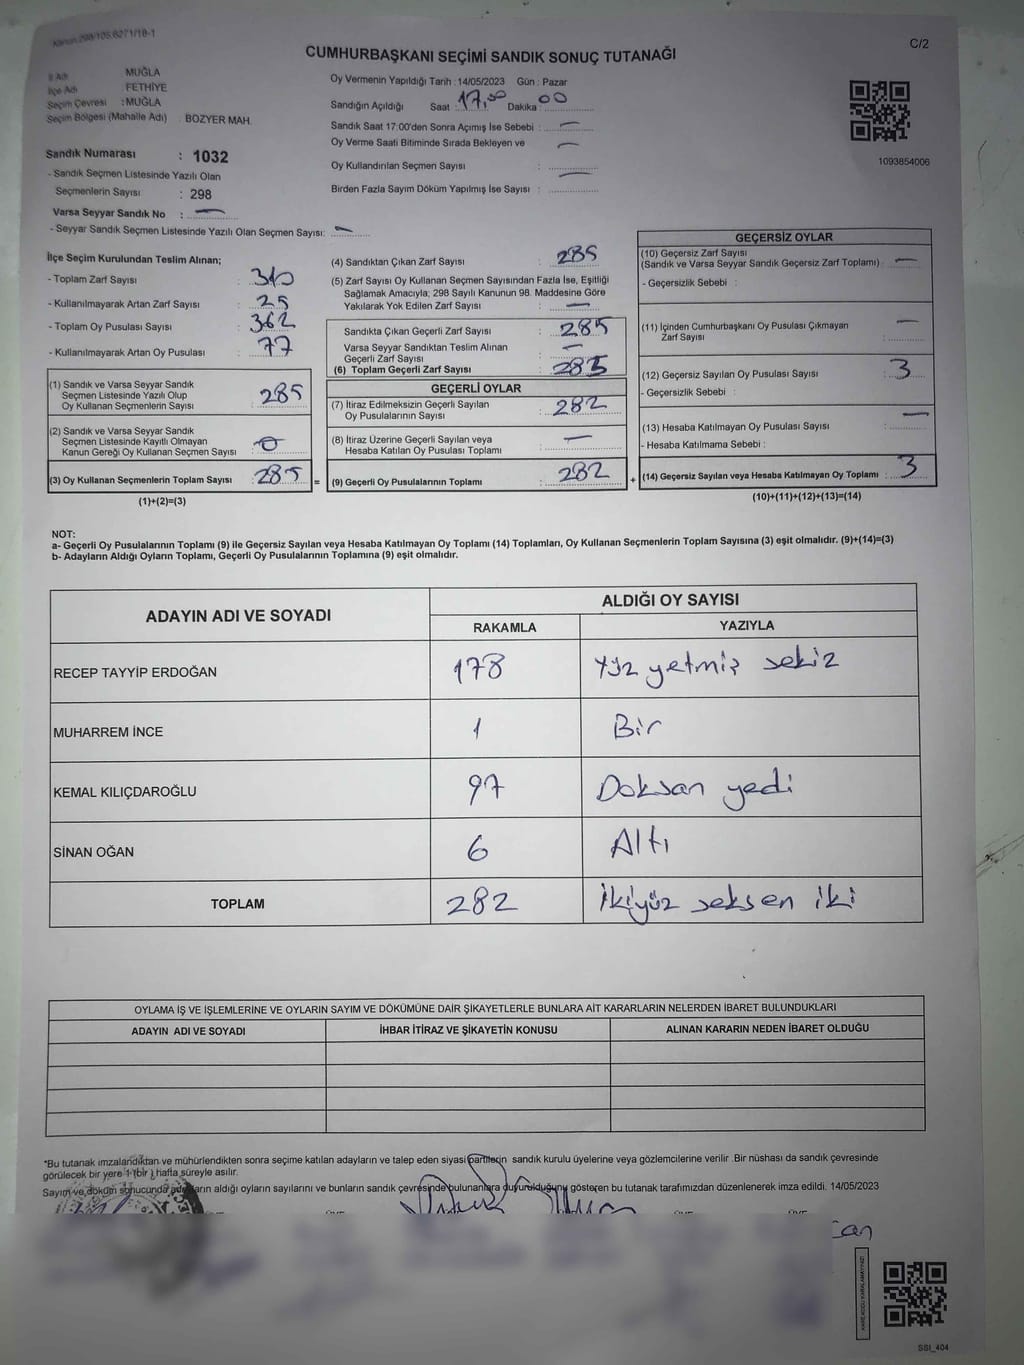 Kanun.298/105.6271/18-1
C/2
CUMHURBAŞKANI SEÇİMİ SANDIK SONUÇ TUTANAĞI
İl Adı MUĞLA
İlçe Adı FETHİYE
Seçim Çevresi : MUĞLA
Seçim Bölgesi (Mahalle Adı) : BOZYER MAH.
Sandık Numarası : 1032
- Sandık Seçmen Listesinde Yazılı Olan
Seçmenlerin Sayısı : 298
Varsa Seyyar Sandık No : —
- Seyyar Sandık Seçmen Listesinde Yazılı Olan Seçmen Sayısı: —
Oy Vermenin Yapıldığı Tarih : 14/05/2023 Gün : Pazar
Sandığın Açıldığı Saat : 17,00 Dakika : 00
Sandık Saat 17:00'den Sonra Açımış İse Sebebi : —
Oy Verme Saati Bitiminde Sırada Bekleyen ve —
Oy Kullandırılan Seçmen Sayısı :
Birden Fazla Sayım Döküm Yapılmış İse Sayısı : —
1093854006
İlçe Seçim Kurulundan Teslim Alınan;
- Toplam Zarf Sayısı : 310
- Kullanılmayarak Artan Zarf Sayısı : 25
- Toplam Oy Pusulası Sayısı : 362
- Kullanılmayarak Artan Oy Pusulası : 77
(1) Sandık ve Varsa Seyyar Sandık
Seçmen Listesinde Yazılı Olup
Oy Kullanan Seçmenlerin Sayısı : 285
(2) Sandık ve Varsa Seyyar Sandık
Seçmen Listesinde Kayıtlı Olmayan
Kanun Gereği Oy Kullanan Seçmen Sayısı : 0
(3) Oy Kullanan Seçmenlerin Toplam Sayısı : 285 =
(1)+(2)=(3)
(4) Sandıktan Çıkan Zarf Sayısı : 285
(5) Zarf Sayısı Oy Kullanan Seçmen Sayısından Fazla İse, Eşitliği
Sağlamak Amacıyla; 298 Sayılı Kanunun 98. Maddesine Göre
Yakılarak Yok Edilen Zarf Sayısı : —
Sandıkta Çıkan Geçerli Zarf Sayısı : 285
Varsa Seyyar Sandıktan Teslim Alınan
Geçerli Zarf Sayısı : —
(6) Toplam Geçerli Zarf Sayısı : 285
GEÇERLİ OYLAR
(7) İtiraz Edilmeksizin Geçerli Sayılan
Oy Pusulalarının Sayısı : 282
(8) İtiraz Üzerine Geçerli Sayılan veya
Hesaba Katılan Oy Pusulası Toplamı : —
(9) Geçerli Oy Pusulalarının Toplamı : 282 +
GEÇERSİZ OYLAR
(10) Geçersiz Zarf Sayısı
(Sandık ve Varsa Seyyar Sandık Geçersiz Zarf Toplamı) : —
- Geçersizlik Sebebi :
(11) İçinden Cumhurbaşkanı Oy Pusulası Çıkmayan
Zarf Sayısı : —
(12) Geçersiz Sayılan Oy Pusulası Sayısı : 3
- Geçersizlik Sebebi :
(13) Hesaba Katılmayan Oy Pusulası Sayısı : —
- Hesaba Katılmama Sebebi :
(14) Geçersiz Sayılan veya Hesaba Katılmayan Oy Toplamı : 3
(10)+(11)+(12)+(13)=(14)
NOT:
a- Geçerli Oy Pusulalarının Toplamı (9) ile Geçersiz Sayılan veya Hesaba Katılmayan Oy Toplamı (14) Toplamları, Oy Kullanan Seçmenlerin Toplam Sayısına (3) eşit olmalıdır. (9)+(14)=(3)
b- Adayların Aldığı Oyların Toplamı, Geçerli Oy Pusulalarının Toplamına (9) eşit olmalıdır.
ADAYIN ADI VE SOYADI
ALDIĞI OY SAYISI
RAKAMLA YAZIYLA
RECEP TAYYİP ERDOĞAN 178 Yüz yetmiş sekiz
MUHARREM İNCE 1 Bir
KEMAL KILIÇDAROĞLU 97 Doksan yedi
SİNAN OĞAN 6 Altı
TOPLAM 282 İkiyüz seksen iki
OYLAMA İŞ VE İŞLEMLERİNE VE OYLARIN SAYIM VE DÖKÜMÜNE DAİR ŞİKAYETLERLE BUNLARA AİT KARARLARIN NELERDEN İBARET BULUNDUKLARI
ADAYIN ADI VE SOYADI İHBAR İTİRAZ VE ŞİKAYETİN KONUSU ALINAN KARARIN NEDEN İBARET OLDUĞU
*Bu tutanak imzalandıktan ve mühürlendikten sonra seçime katılan adayların ve talep eden siyasi partilerin sandık kurulu üyelerine veya gözlemcilerine verilir .Bir nüshası da sandık çevresinde
görülecek bir yere 1 (bir ) hafta süreyle asılır.
Sayım ve döküm sonucunda adayların aldığı oyların sayılarını ve bunların sandık çevresinde bulunanlara duyurulduğunu gösteren bu tutanak tarafımızdan düzenlenerek imza edildi. 14/05/2023
SSI_404